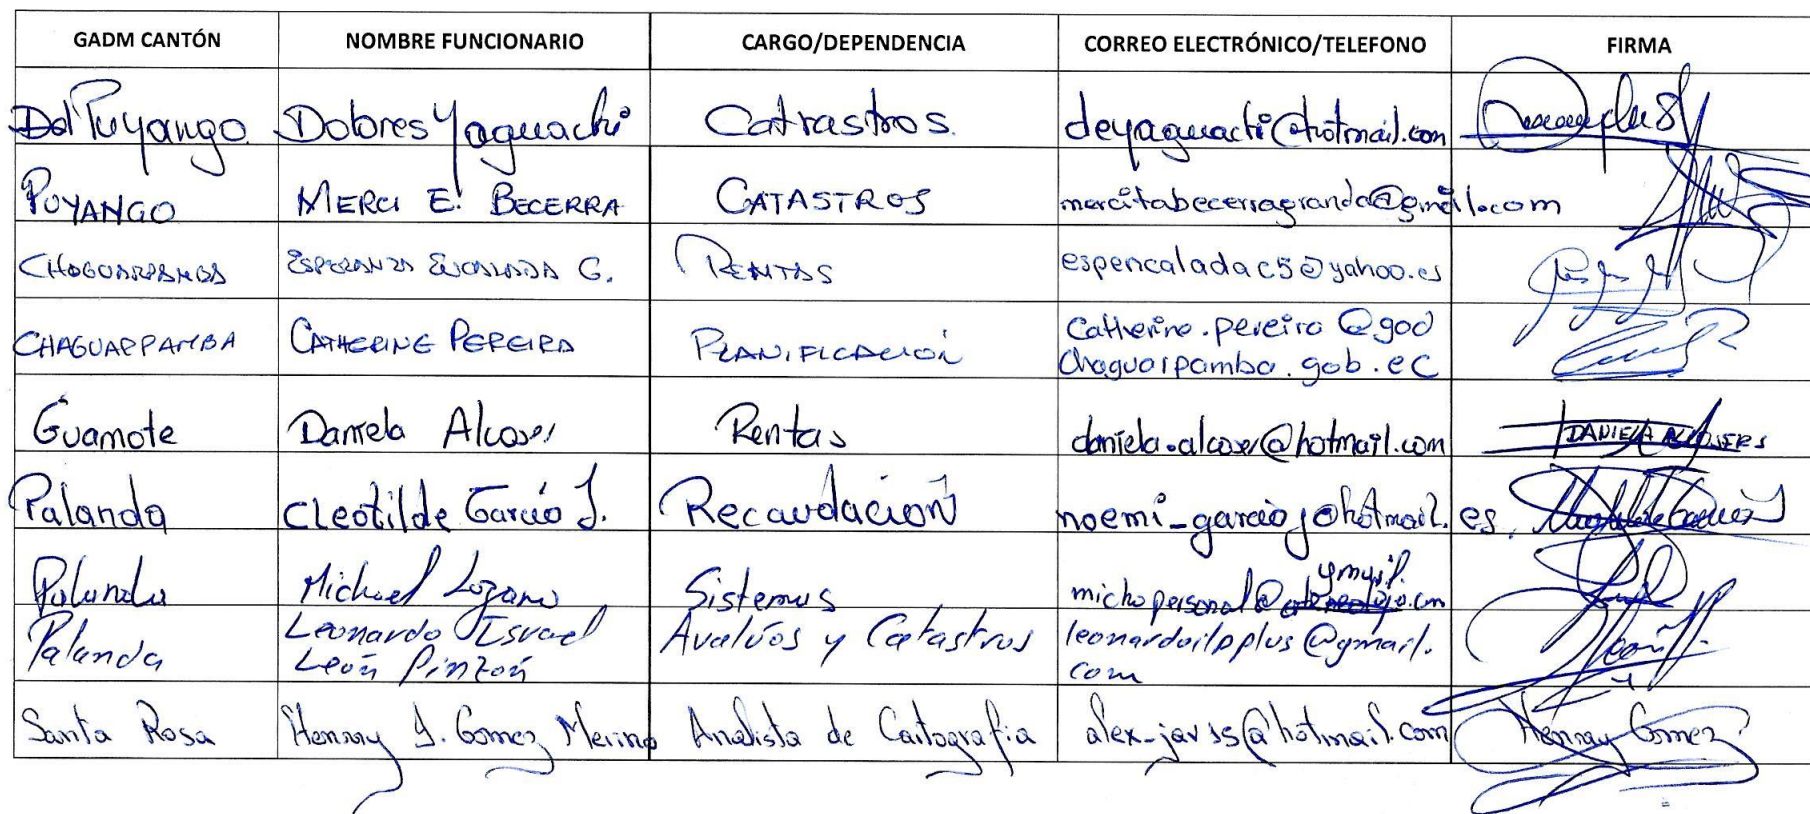 GADM CANTÓN NOMBRE FUNCIONARIO CARGO/DEPENDENCIA CORREO ELECTRÓNICO/TELEFONO FIRMA
Puyango Dolores Yaguachi Catrastros. deyaguachi@hotmail.com
PUYANGO MERCI E. BECERRA CATASTROS mercitabecerragranda@gmail.com
CHAGUARPAMBA ESPERANZA ENCALADA G. RENTAS espencaladac5@yahoo.es
CHAGUARPAMBA CATHERINE PEREIRA PLANIFICACIÓN Catherine.pereira@gad
chaguarpamba.gob.ec
Guamote Daniela Alcoser Rentas daniela.alcoser@hotmail.com DANIELA ALCOSER S
Palanda Cleotilde García J. Recaudación noemi_garciaj@hotmail.es.
Palanda Michael Lozano Sistemas michopersonal@gmail.
Palanda Leonardo Israel Avalúos y Catastros leonardoilpplus@gmail.
León Pinzón com
Santa Rosa Henrry J. Gomez Merino Analista de Cartografia alex-javss@hotmail.com Henrry Gomez